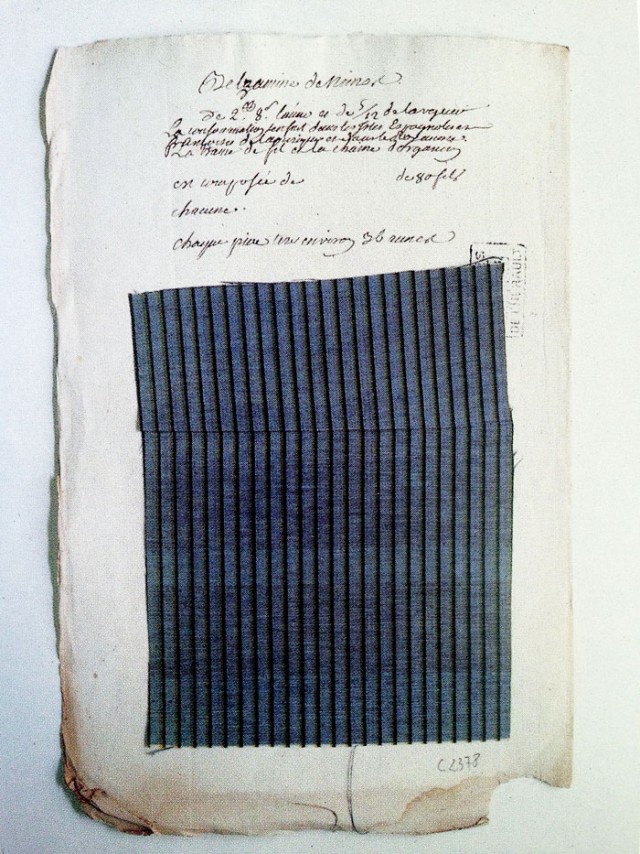 De Nimes
De 2.ᵗᵗ 8.ˢ l'aune et de 5/12 de largeur
La consommation s'en fait dans les Isles Espagnoles et
françoises de l'amerique et dans le
La trame de fil et la chaine d'organcin
est composée de de 80 fils
chacune.
chaque piece tire environ 36 aunes
DE L'HERAULT
C2378